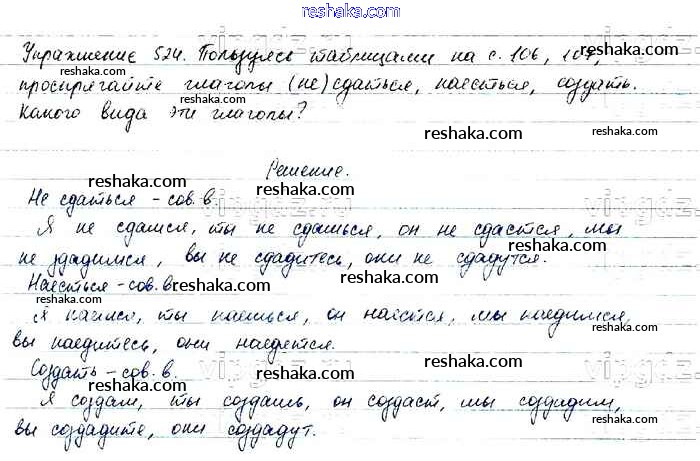 reshaka.com
Упражнение 524. Пользуясь таблицами на с. 106, 107,
reshaka.com
проспрягайте глаголы (не)сдаться, наесться, создать.
Какого вида эти глаголы?
reshaka.com
reshaka.com
Решение.
reshaka.com
Не сдаться - сов. в.
reshaka.com
Я не сдамся, ты не сдашься, он не сдастся, мы
не сдадимся, вы не сдадитесь, они не сдадутся.
reshaka.com
Наесться - сов. в.
reshaka.com
reshaka.com
Я наемся, ты наешься, он наестся, мы наедимся,
вы наедитесь, они наедятся.
reshaka.com
reshaka.com
Создать - сов. в.
reshaka.com
Я создам, ты создашь, он создаст, мы создадим,
вы создадите, они создадут.
reshaka.com
reshaka.com